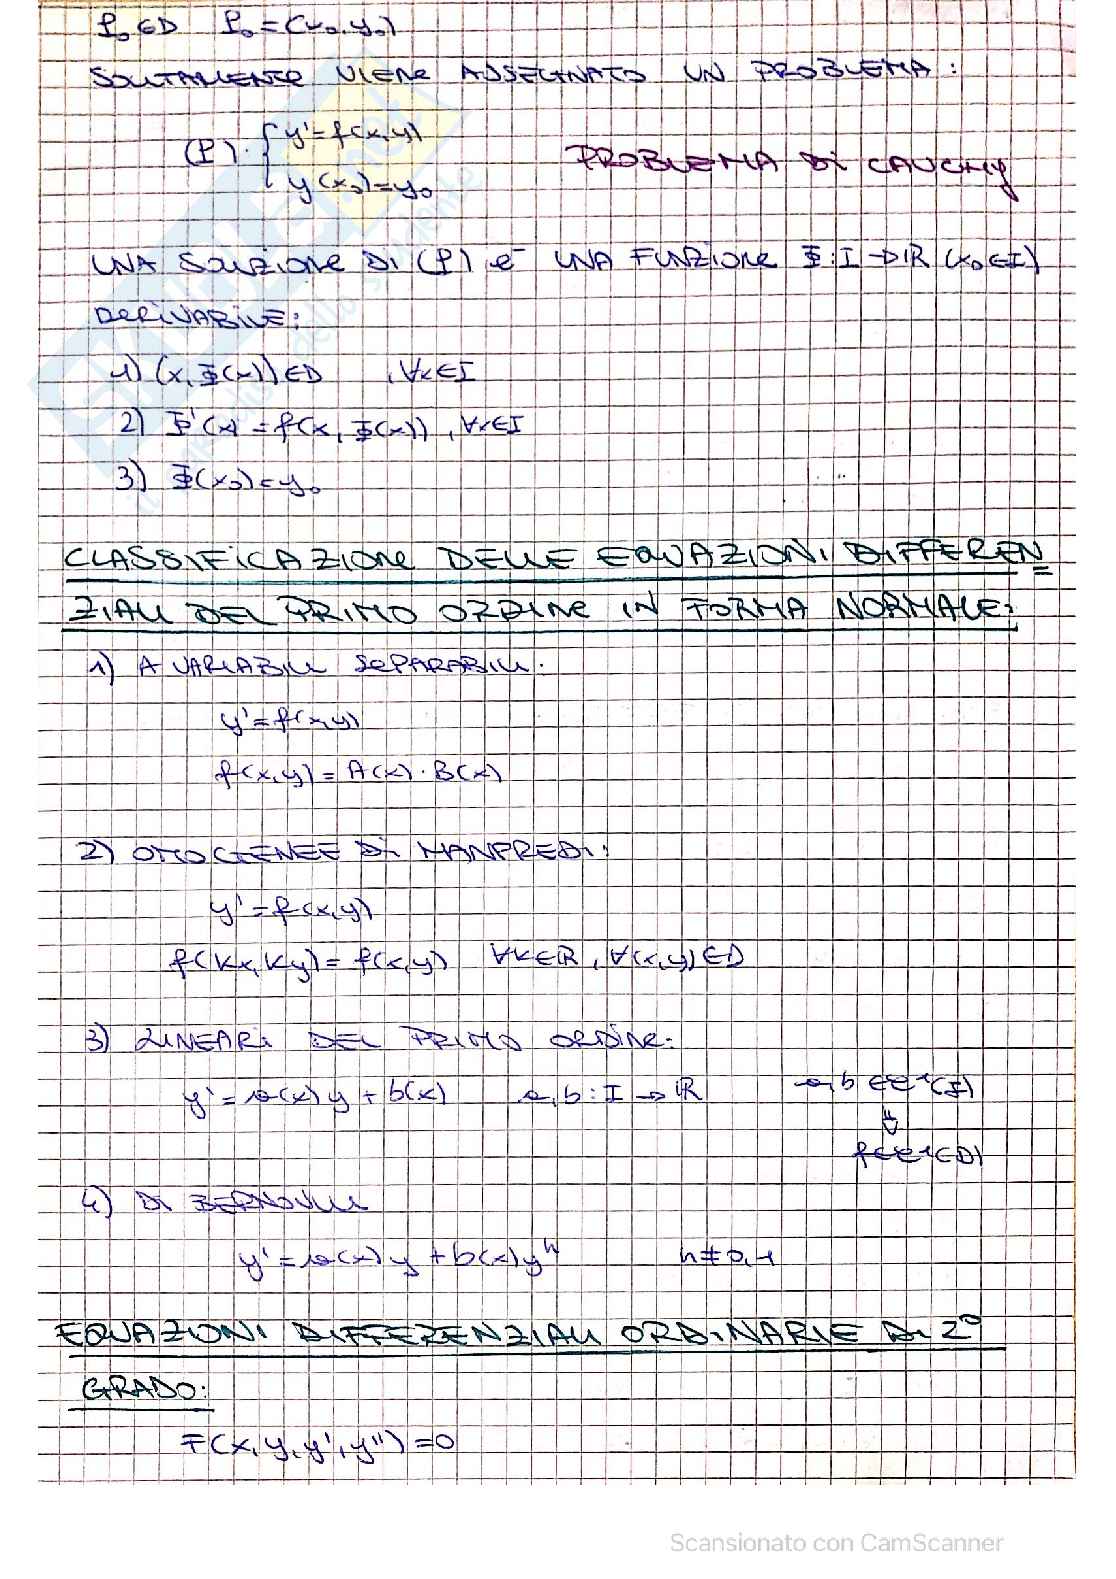 P₀ ∈ D P₀ = (x₀, y₀)
SOLITAMENTE VIENE ASSEGNATO UN PROBLEMA:
(P): { y' = f(x, y)
y(x₀) = y₀
PROBLEMA DI CAUCHY
UNA SOLUZIONE DI (P) è UNA FUNZIONE Φ: I → ℝ (x₀ ∈ I)
DERIVABILE:
1) (x, Φ(x)) ∈ D , ∀x ∈ I
2) Φ'(x) = f(x, Φ(x)) , ∀x ∈ I
3) Φ(x₀) = y₀
CLASSIFICAZIONE DELLE EQUAZIONI DIFFEREN
ZIALI DEL PRIMO ORDINE IN FORMA NORMALE:
1) A VARIABILI SEPARABILI:
y' = f(x, y)
f(x, y) = A(x) · B(x)
2) OMOGENEE DI MANFREDI:
y' = f(x, y)
f(kx, ky) = f(x, y) ∀k ∈ ℝ , ∀(x, y) ∈ D
3) LINEARI DEL PRIMO ORDINE:
y' = a(x) y + b(x) a, b : I → ℝ a, b ∈ C¹(I)
⇓
f ∈ C¹(D)
4) DI BERNOULLI
y' = a(x) y + b(x) yⁿ n ≠ 0, 1
EQUAZIONI DIFFERENZIALI ORDINARIE DI 2°
GRADO:
F(x, y, y', y'') = 0
Scansionato con CamScanner